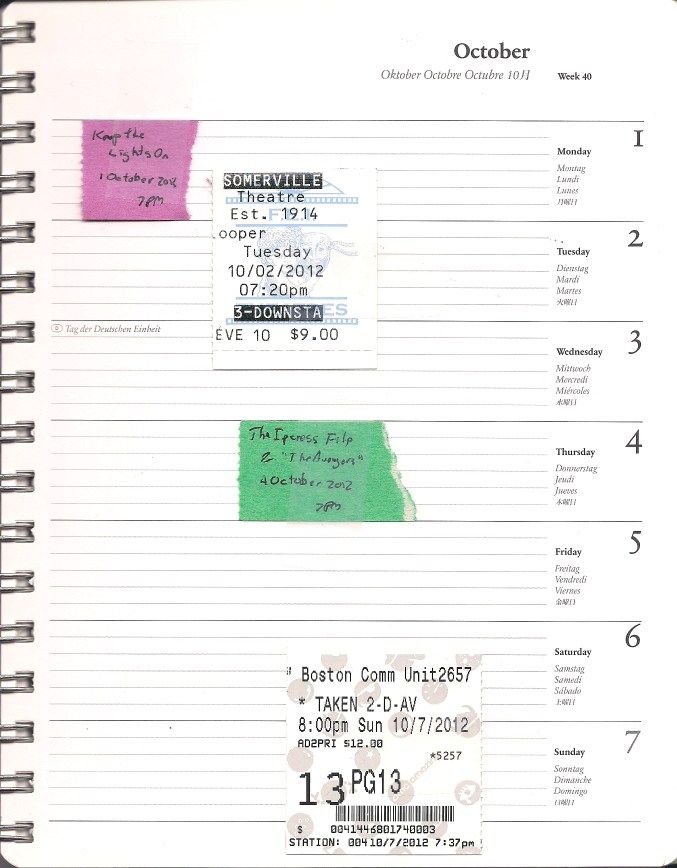 October
Oktober Octobre Octubre 10月
Week 40
1
Monday
Montag
Lundi
Lunes
月曜日
Keep the
Lights On
1 October 2012
7PM
SOMERVILLE
Theatre
Est. 1914
ooper
Tuesday
10/02/2012
07:20pm
3-DOWNSTA
EVE 10 $9.00
2
Tuesday
Dienstag
Mardi
Martes
火曜日
D Tag der Deutschen Einheit
3
Wednesday
Mittwoch
Mercredi
Miércoles
水曜日
The Ipcress File
& "The Avengers"
4 October 2012
7PM
4
Thursday
Donnerstag
Jeudi
Jueves
木曜日
5
Friday
Freitag
Vendredi
Viernes
金曜日
6
Saturday
Samstag
Samedi
Sábado
土曜日
Boston Comm Unit2657
* TAKEN 2-D-AV
8:00pm Sun 10/7/2012
AD2PRI $12.00
*5257
13 PG13
$ 0041446801740003
STATION: 004 10/7/2012 7:37pm
7
Sunday
Sonntag
Dimanche
Domingo
日曜日